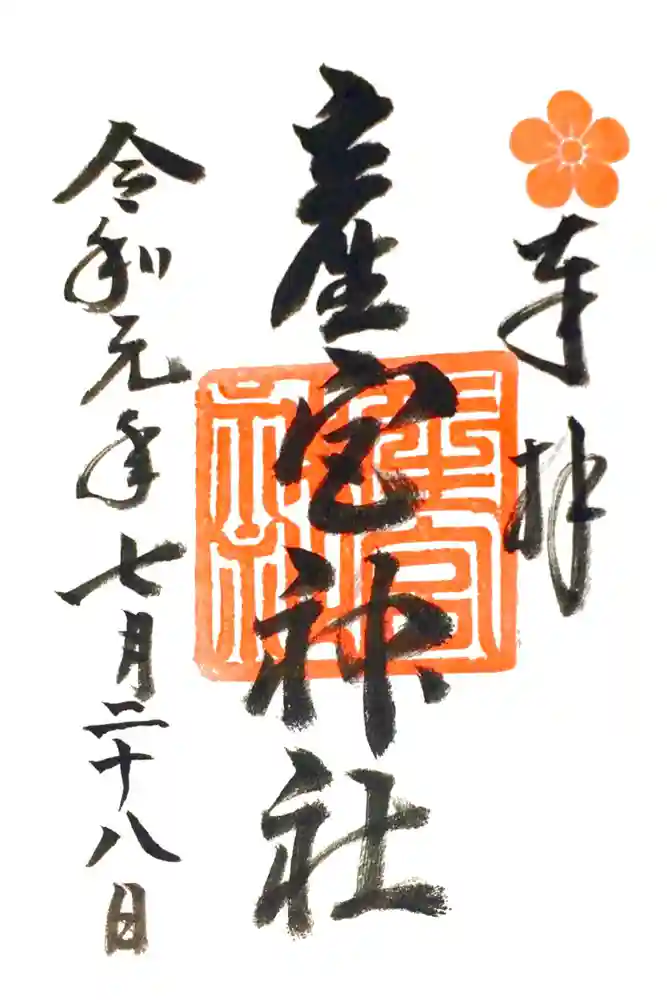 奉拝
産宮神社
産宮神社
令和元年七月二十八日